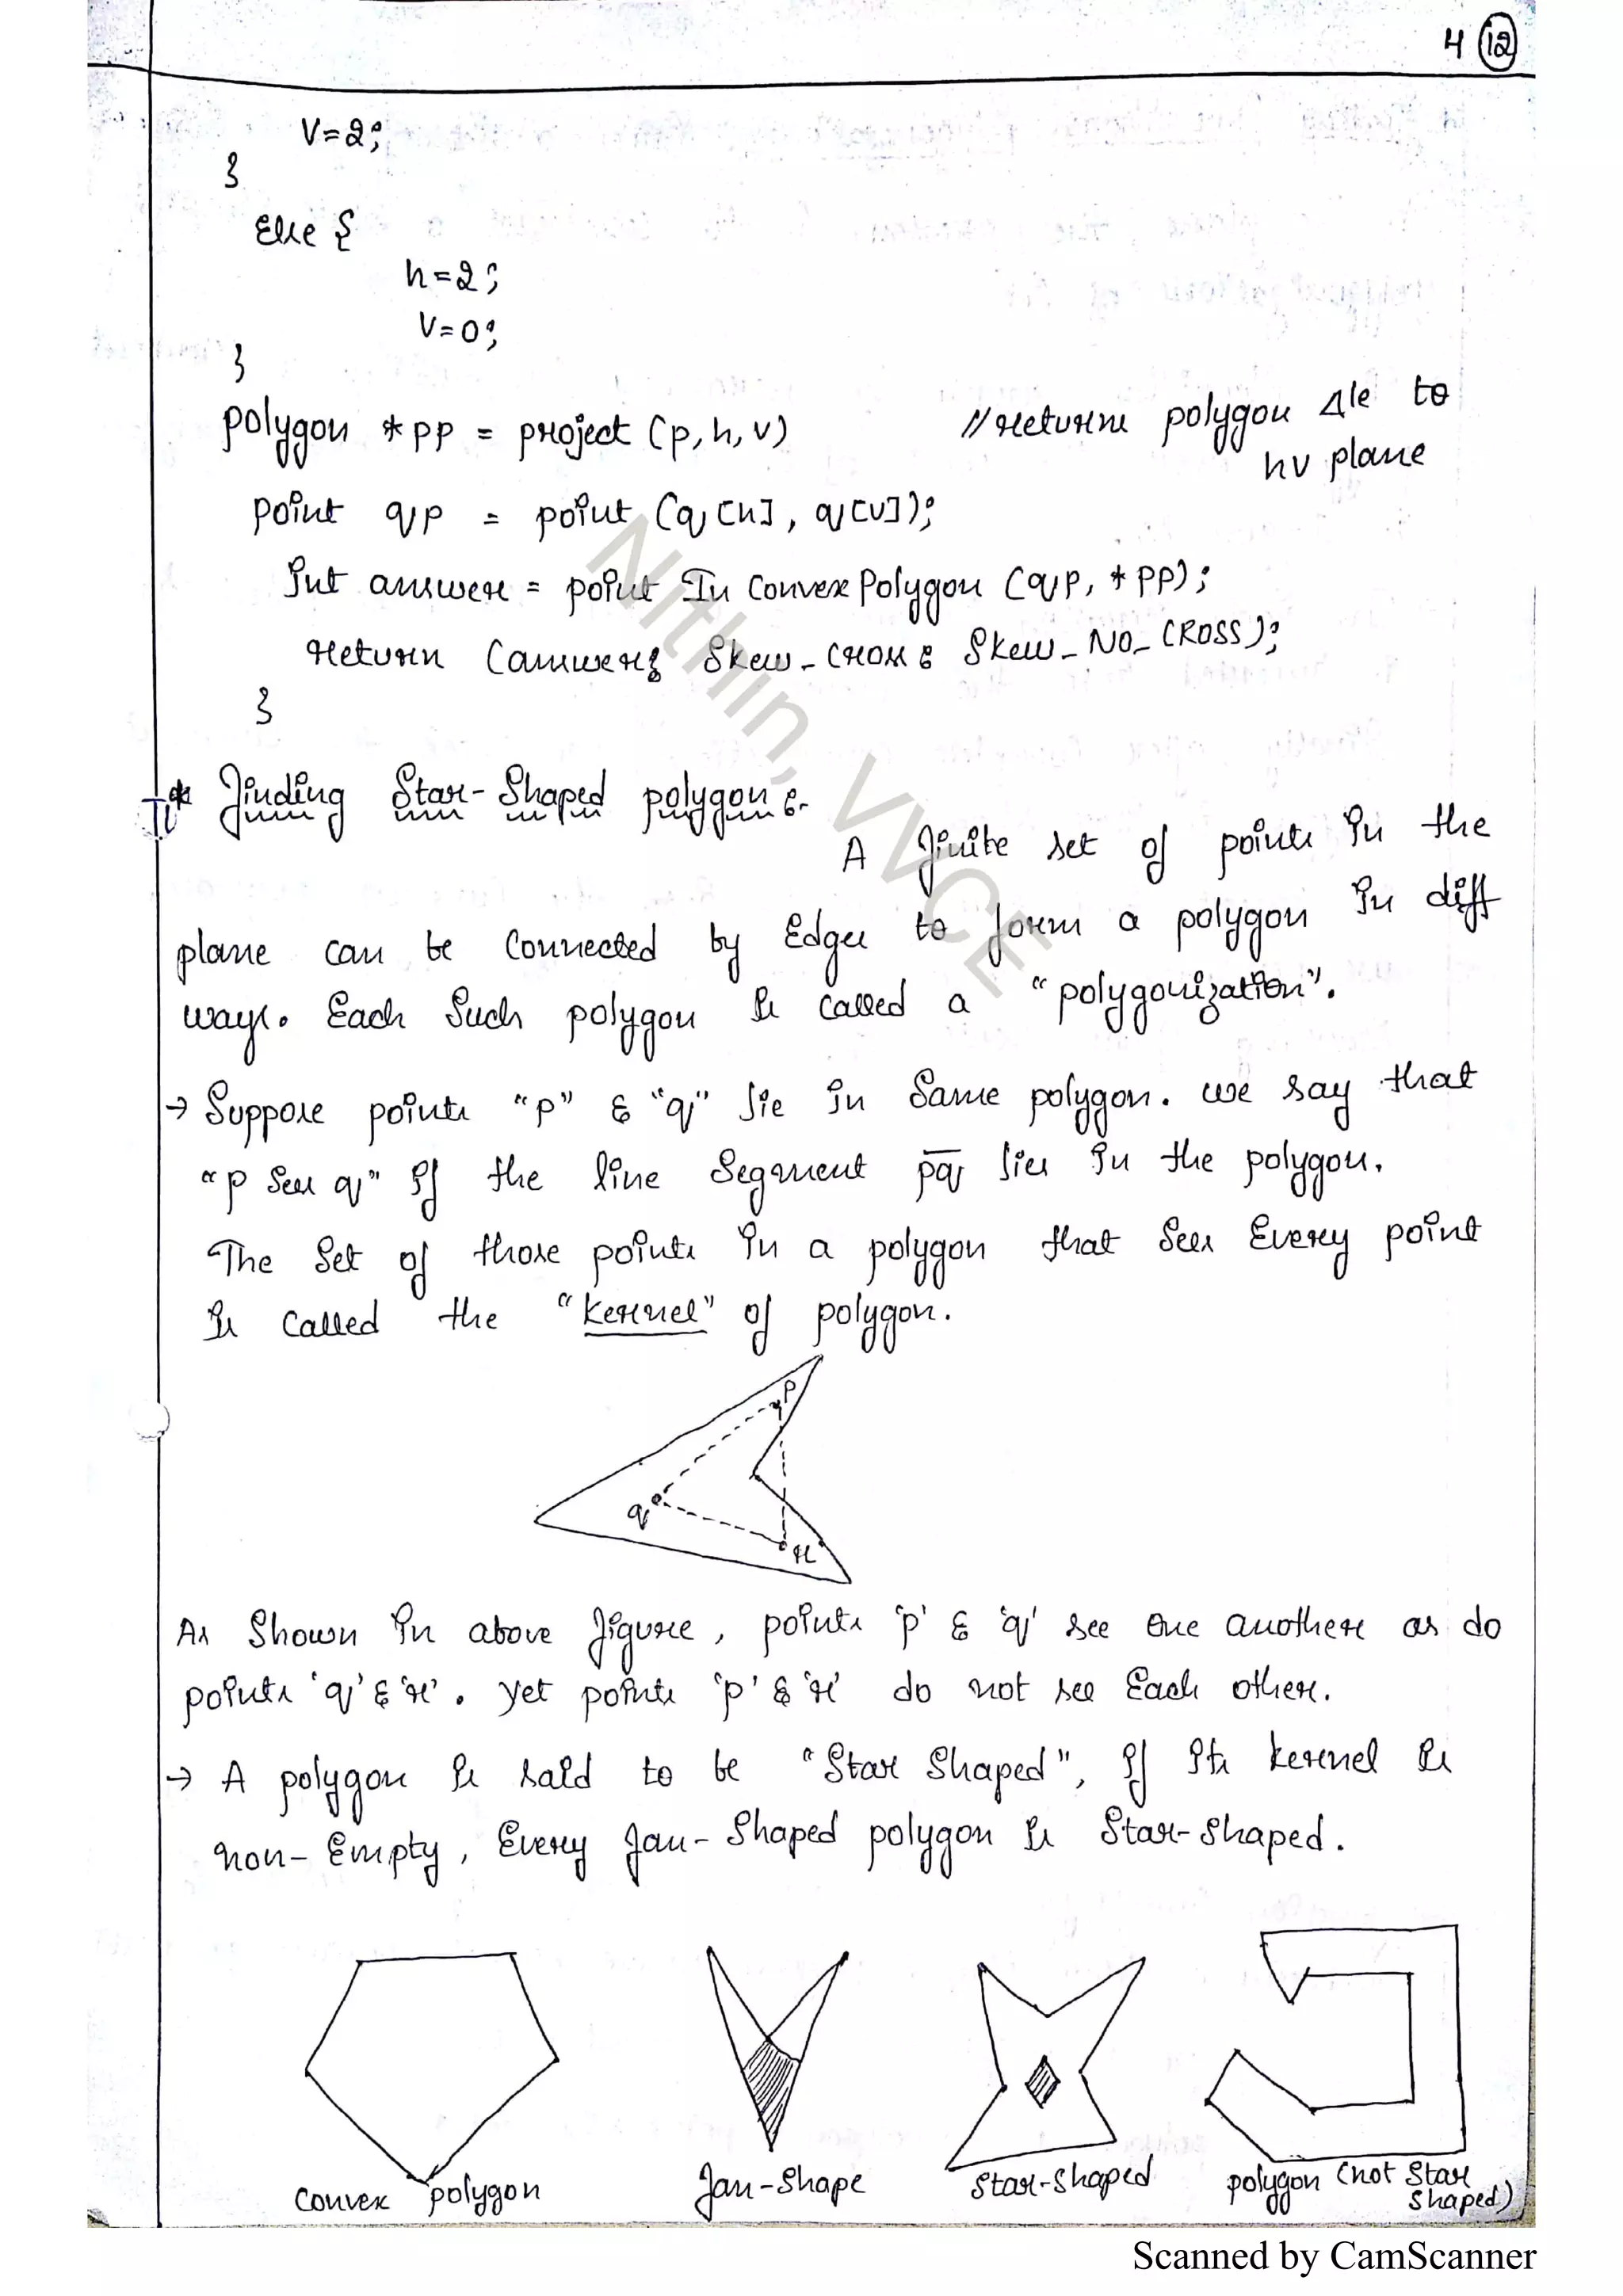 4 12
V=2;
}
Else {
h=2;
V=0;
}
polygon *pp = project (p, h, v) // returns polygon Δle to
hv plane
point qp = point (q[h], q[v]);
int answer = point In Convex Polygon (qp, *pp);
return (answer? Skew_cross : Skew_NO_CROSS);
}
* Finding Star-Shaped polygon :-
A finite set of points in the
plane can be connected by Edges to form a polygon in diff
ways. Each Such polygon is called a "polygonization".
→ Suppose points "p" & "q" lie in Same polygon. we say that
"p sees q" if the line Segment pq lies in the polygon.
The Set of those points in a polygon that Sees Every point
is called the "kernel" of polygon.
p
q
r
As Shown in above figure, points 'p' & 'q' see one another as do
points 'q' & 'r'. Yet points 'p' & 'r' do not see Each other.
→ A polygon is said to be "Star Shaped", if its kernel is
non-Empty, Every fan-Shaped polygon is Star-shaped.
convex polygon
fan-shape
star-shaped
polygon (not Star
shaped)
Nithin, VVCE
Scanned by CamScanner